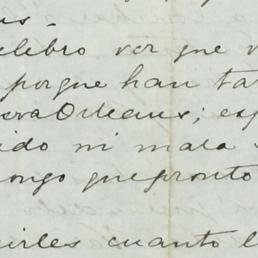 us.
elebro ver que v
porque han ta
eva Orleans; esp
ido ni mala
ongo que pronto
irles cuanto l